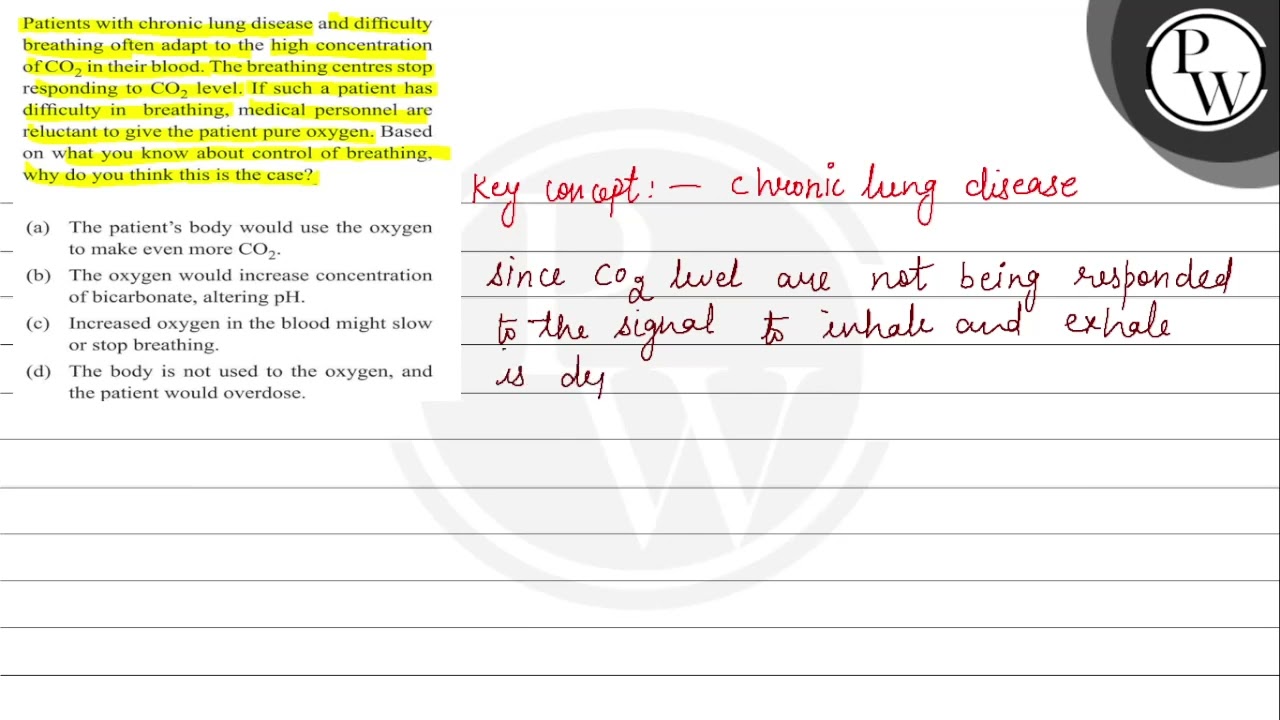 Patients with chronic lung disease and difficulty
breathing often adapt to the high concentration
of CO₂ in their blood. The breathing centres stop
responding to CO₂ level. If such a patient has
difficulty in breathing, medical personnel are
reluctant to give the patient pure oxygen. Based
on what you know about control of breathing,
why do you think this is the case?
(a) The patient's body would use the oxygen
to make even more CO₂.
(b) The oxygen would increase concentration
of bicarbonate, altering pH.
(c) Increased oxygen in the blood might slow
or stop breathing.
(d) The body is not used to the oxygen, and
the patient would overdose.
Key concept: — Chronic lung disease
since CO₂ level are not being responded
to the signal to inhale and exhale
is dep
P
W
P
W